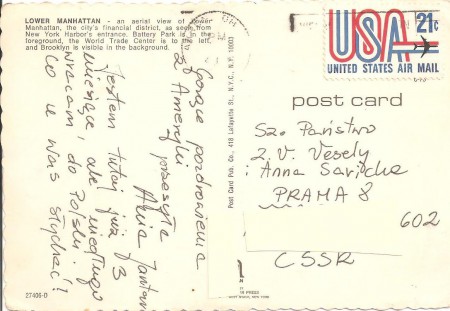 LOWER MANHATTAN - an aerial view of Lower
Manhattan, the city's financial district, as seen from
New York Harbor's entrance. Battery Park is in the
foreground, the World Trade Center is to the left,
and Brooklyn is visible in the background.
Gorące pozdrowienia
z Ameryki
przesyła
Ania
Jestem tutaj już 3
miesiące, ale niedługo
wracam do Polski.
Co u Was słychać!
27406-D
Post Card Pub. Co., 418 Lafayette St., N.Y.C., N.Y. 10003
USA 21c
UNITED STATES AIR MAIL
post card
Sz. Państwo
Z. V. Vesely
i Anna Savicka
PRAHA 8
602
CSSR